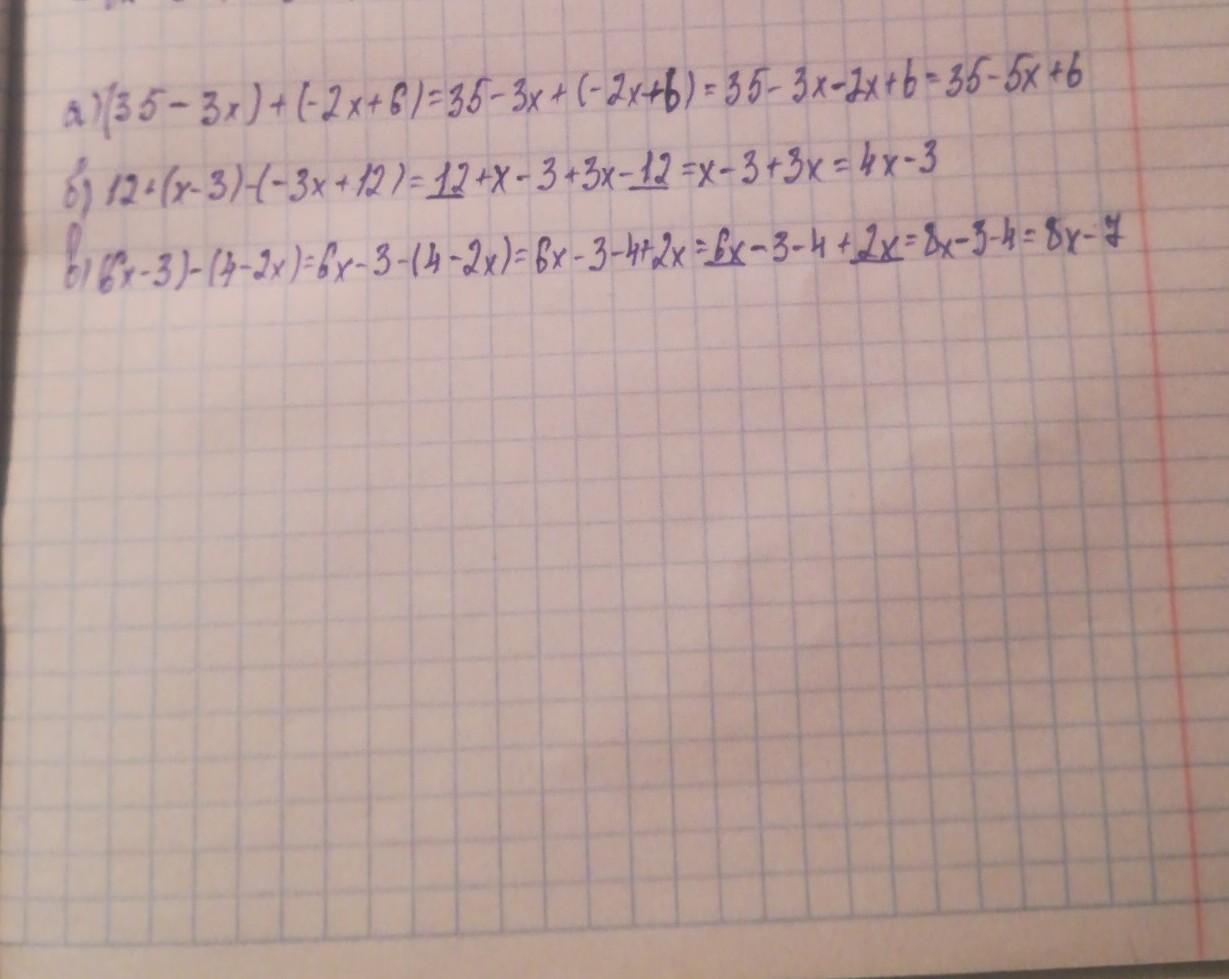 а) (35-3x)+(-2x+6)=35-3x+(-2x+6)=35-3x-2x+6=35-5x+6
б) 12+(x-3)-(-3x+12)=12+x-3+3x-12=x-3+3x=4x-3
в) (6x-3)-(4-2x)=6x-3-(4-2x)=6x-3-4+2x=6x-3-4+2x=8x-3-4=8x-7